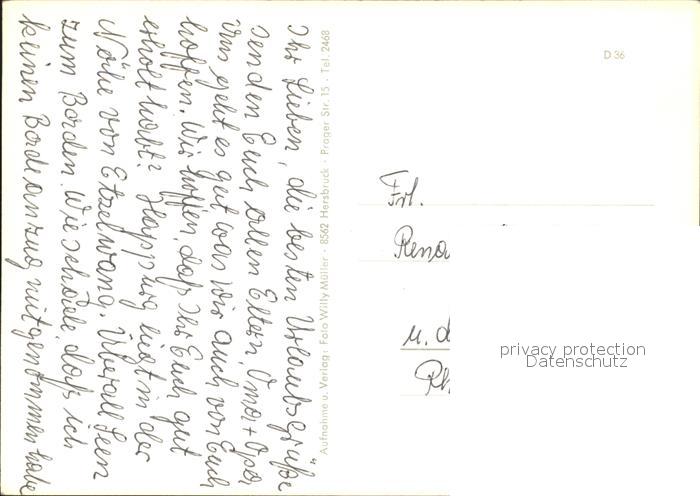 Ihr Lieben, die besten Urlaubsgrüße
senden Euch allen Eltern, Oma + Opa
Uns geht es gut was wir auch von Euch
hoffen. Wir hoffen, daß Ihr Euch gut
erholt habt? Happurg liegt in der
Nähe von Etzelwang. Überall Seen
zum Baden. Wie schade, daß ich
keinen Badeanzug mitgenommen habe
Aufnahme u. Verlag: Foto Willy Müller · 8562 Hersbruck · Prager Str. 15 · Tel. 2468
D 36
Frl.
Rena
u. d
Rh
privacy protection
Datenschutz